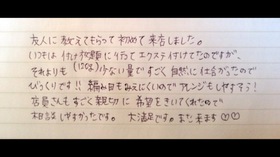 友人に教えてもらって初めて来店しました。
いつもは付け放題に行ってエクステ付けてたのですが、
それよりも(120g)少ない量ですごく自然に仕上がったので
びっくりです!!編み目もみえにくいのでアレンジもしやすそう!
店員さんもすごく親切に希望をきいてくれたので
相談しやすかったです。大満足です。また来ます♡♡